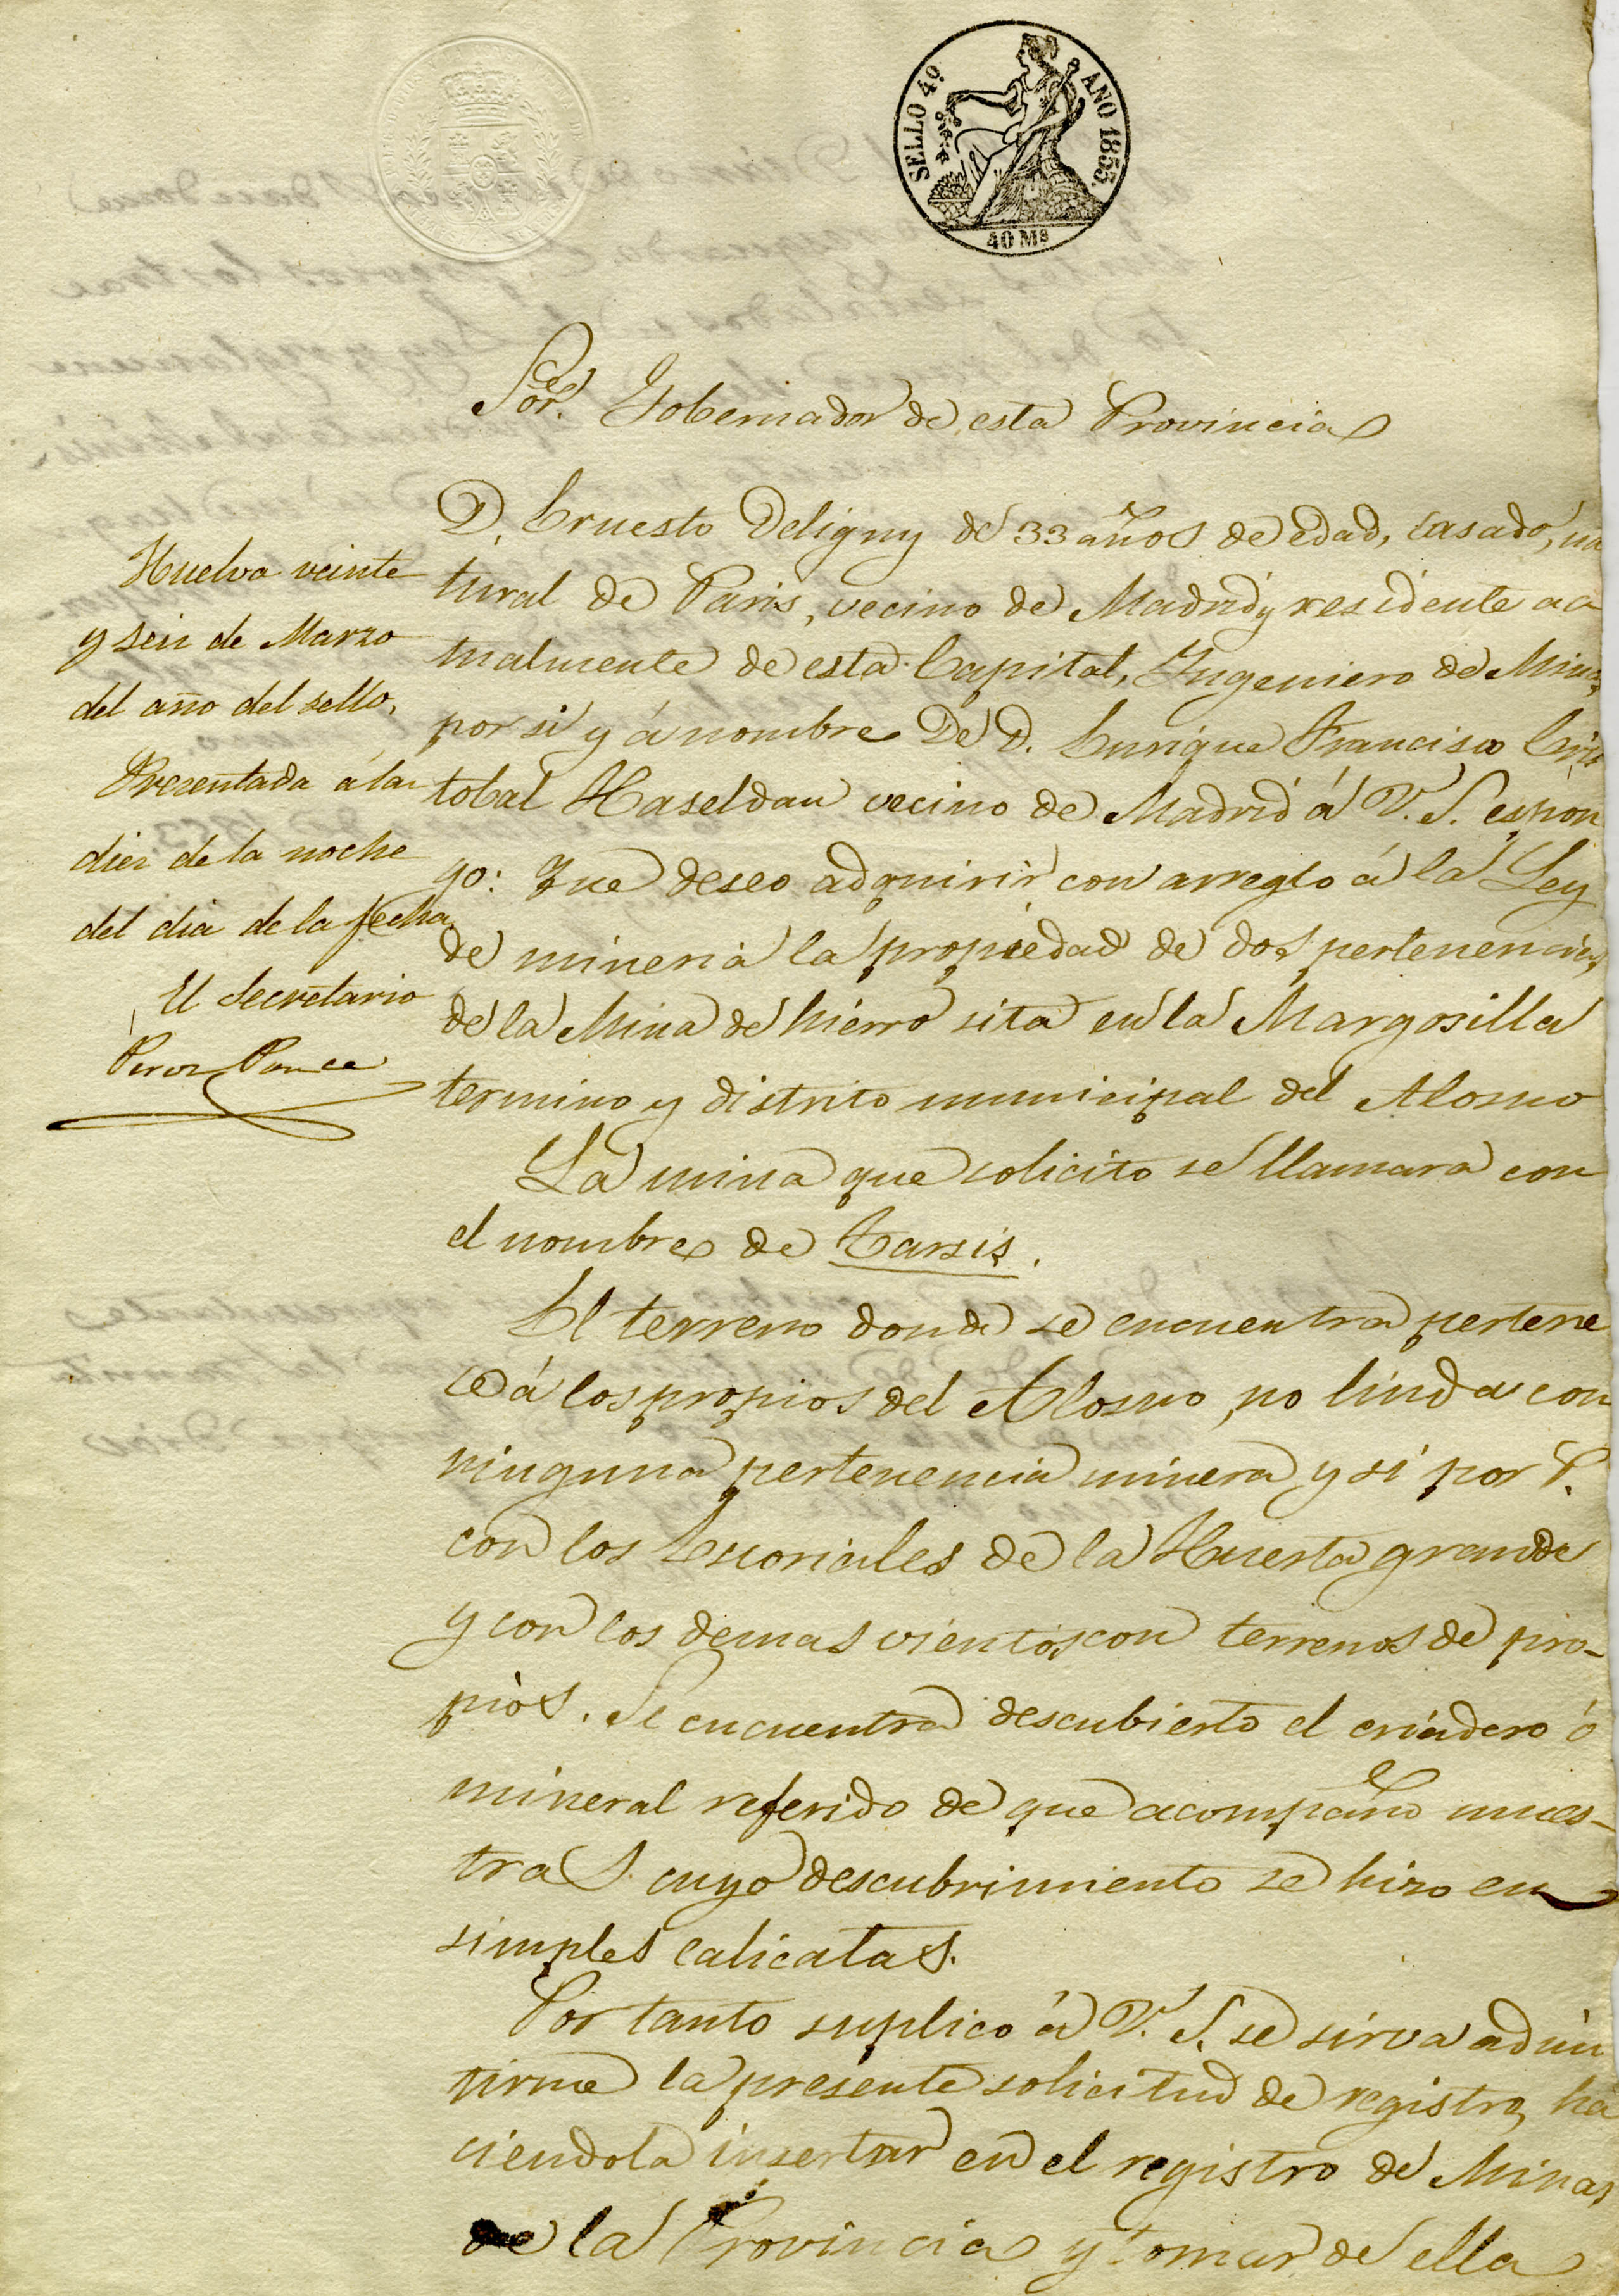 SELLO 4º. AÑO 1853.
40 Mˢ
Sor. Gobernador de esta Provincia
D. Ernesto Deligny de 33 años de edad, casado, na
tural de Paris, vecino de Madrid y residente ac
tualmente de esta Capital, Ingeniero de Minas,
por si y á nombre De D. Enrique Francisco Cris
tobal Haseldau vecino de Madrid á V. S. espon
go: Que deseo adquirir con arreglo á la Ley
de mineria la propiedad de dos pertenencias,
de la Mina de hierro sita en la Margosilla
termino y distrito municipal del Alosno
La mina que solicito se llamara con
el nombre de Tarsis.
El terreno donde se encuentra pertene
ce á los propios del Alosno, no linda con
ninguna pertenencia minera y si por P.
con los Escoriales de la Huerta grande
y con los demas vientos con terrenos de pro-
pios. Se encuentra descubierto el criadero ó
mineral referido de que acompaño mues-
tras cuyo descubrimiento se hizo en
simples calicatas.
Por tanto suplico á V. S. se sirva admi
tirme la presente solicitud de registro, ha
ciendola insertar en el registro de Minas
de la Provincia y tomar de ella
Huelva veinte
y seis de Marzo
del año del sello.
Presentada á las
diez de la noche
del dia de la fecha,
El Secretario
Perez Ponce